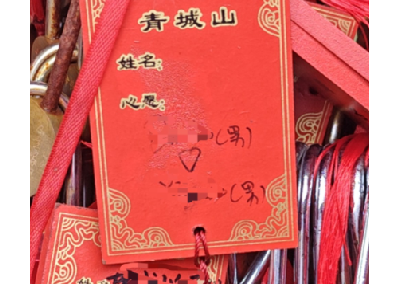 青城山
姓名:
心愿:
(男)
♡
(男)